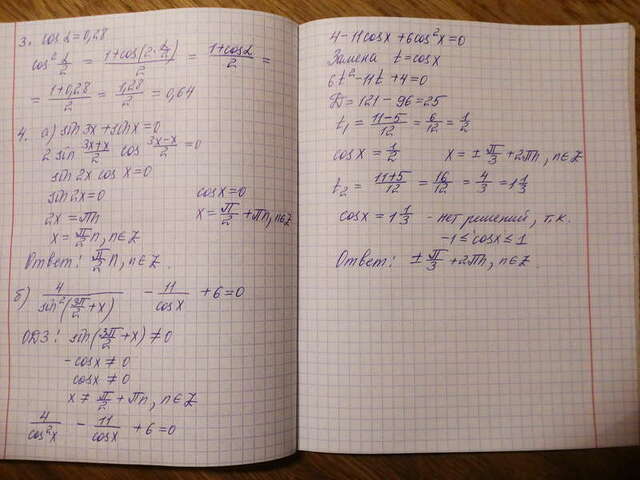 3. cos α = 0,28
cos² α/2 = (1+cos(2·α/2))/2 = (1+cos α)/2 =
= (1+0,28)/2 = 1,28/2 = 0,64
4. а) sin 3x + sin x = 0
2 sin (3x+x)/2 cos (3x-x)/2 = 0
sin 2x cos x = 0
sin 2x = 0 cos x = 0
2x = πn x = π/2 + πn, n∈Z
x = π/2 n, n∈Z
Ответ: π/2 n, n∈Z.
б) 4/(sin²(3π/2 + x)) - 11/cos x + 6 = 0
ОДЗ: sin(3π/2 + x) ≠ 0
-cos x ≠ 0
cos x ≠ 0
x ≠ π/2 + πn, n∈Z
4/cos²x - 11/cos x + 6 = 0
4 - 11cos x + 6cos²x = 0
Замена t = cos x
6t² - 11t + 4 = 0
D = 121 - 96 = 25
t₁ = (11-5)/12 = 6/12 = 1/2
cos x = 1/2 x = ± π/3 + 2πn, n∈Z
t₂ = (11+5)/12 = 16/12 = 4/3 = 1 1/3
cos x = 1 1/3 - нет решений, т.к.
-1 ≤ cos x ≤ 1
Ответ: ± π/3 + 2πn, n∈Z